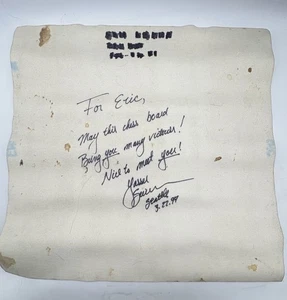 For Eric,
May this chess board
Bring you many victories!
Nice to meet you!
Yasser
Seattle
3.22.97